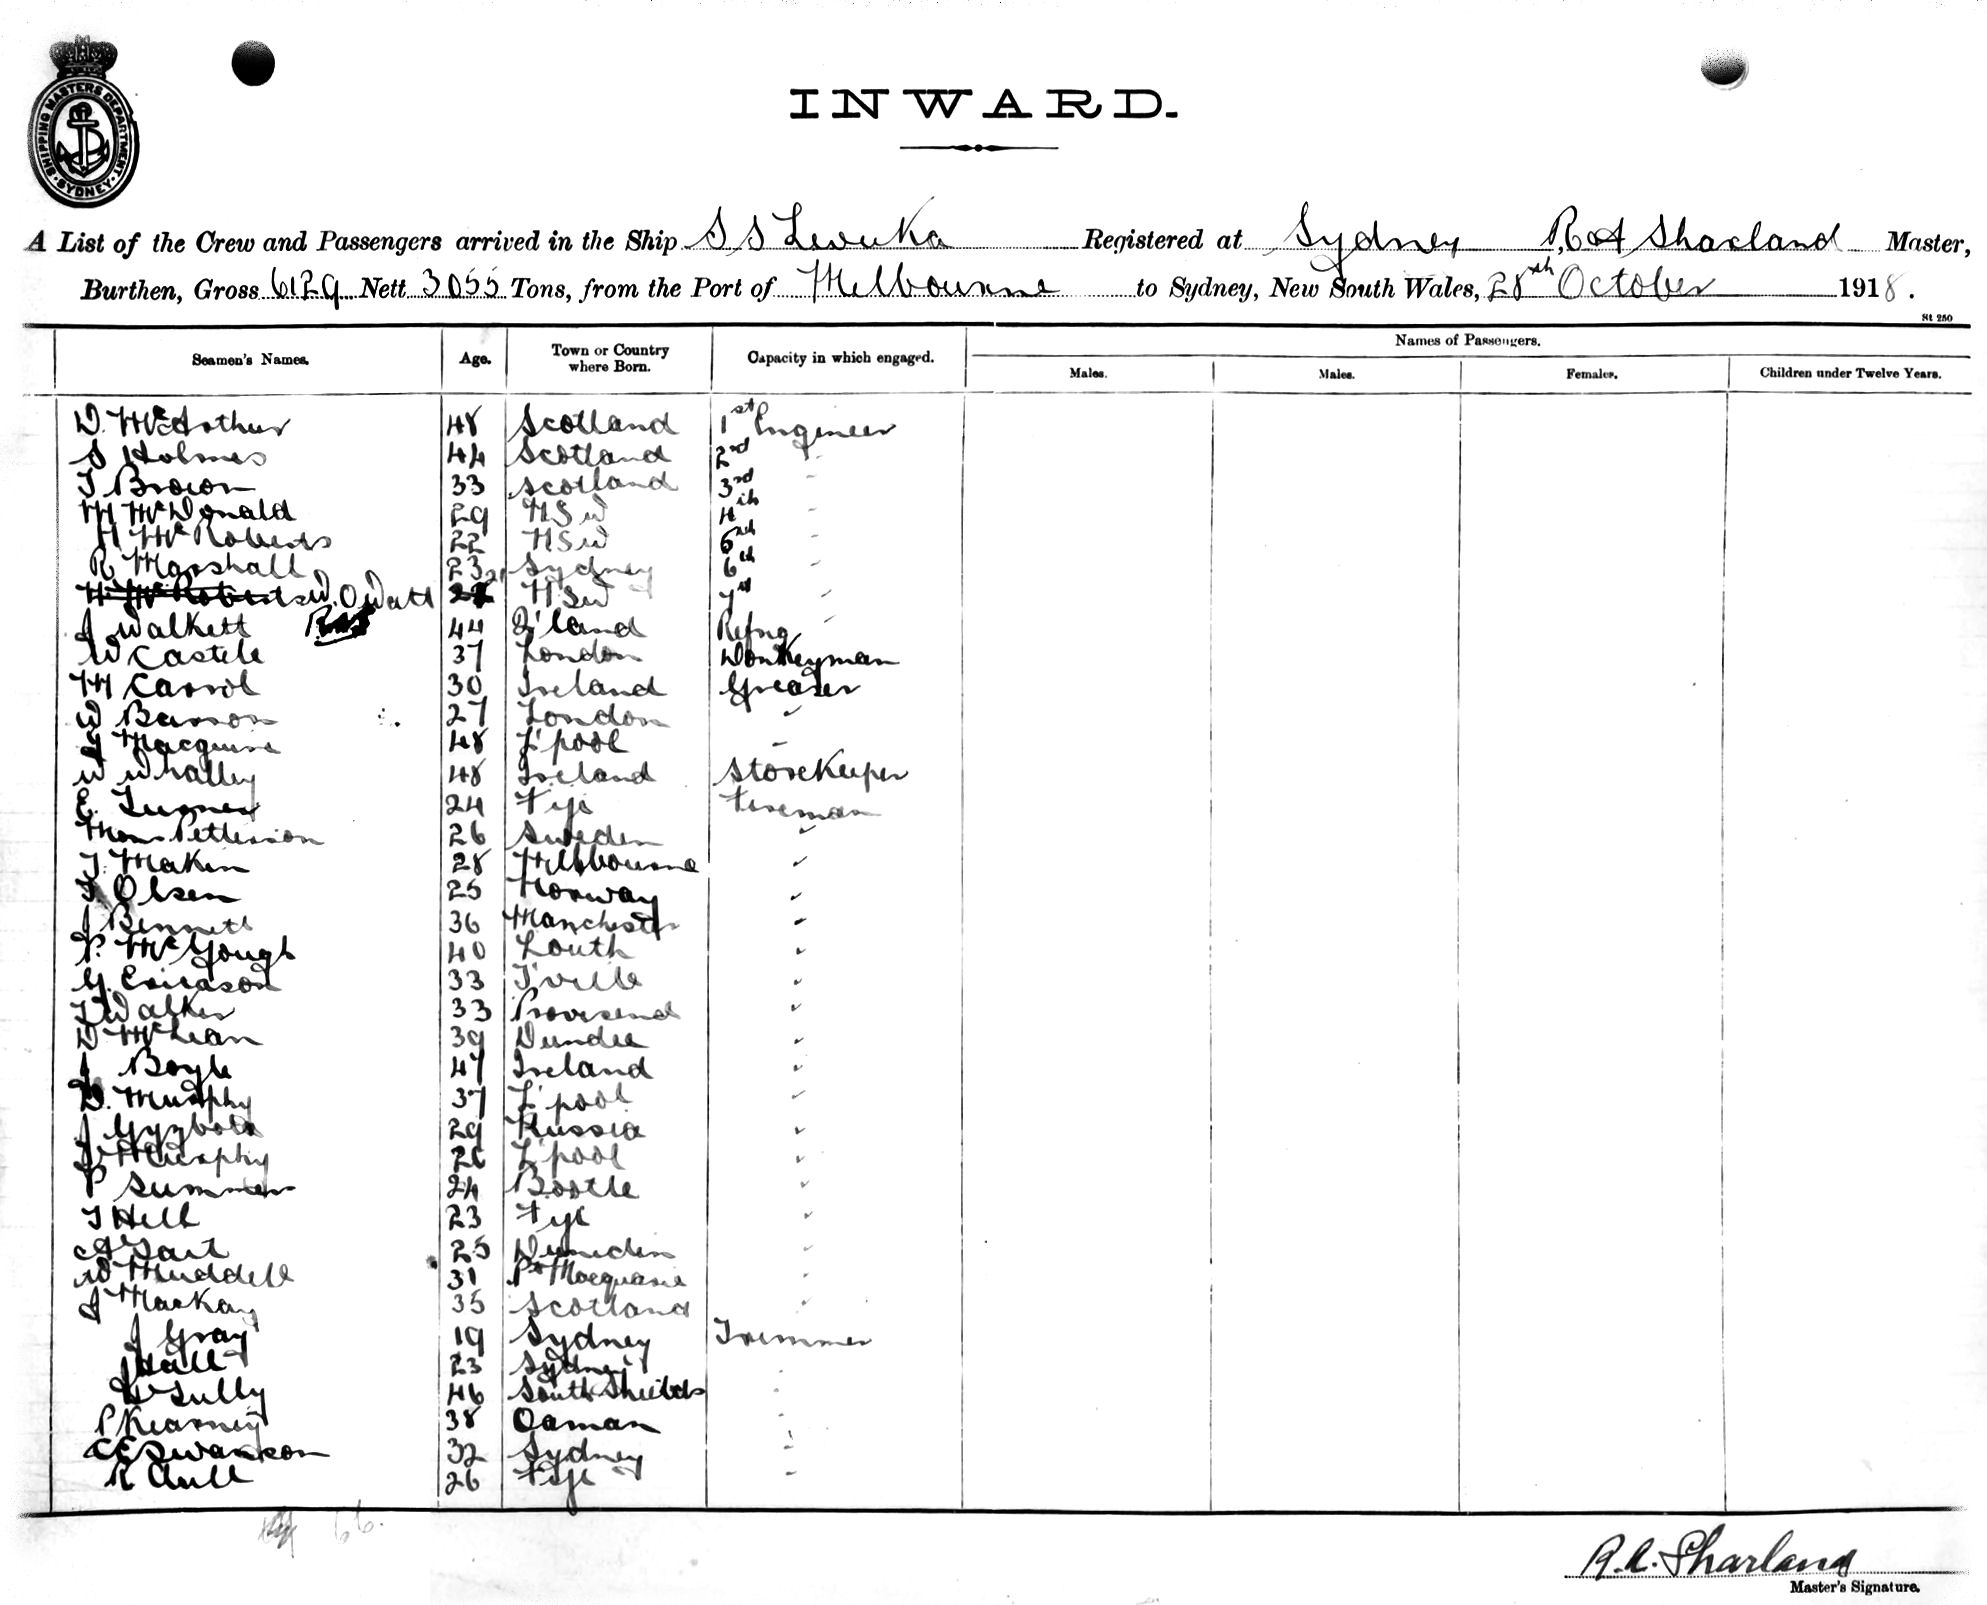 SHIPPING MASTERS DEPARTMENT SYDNEY
INWARD.
A List of the Crew and Passengers arrived in the Ship S S Levuka Registered at Sydney R A Sharland Master,
Burthen, Gross 6129 Nett 3055 Tons, from the Port of Melbourne to Sydney, New South Wales, 28th October 1918.
St 250
Seamen's Names. Age. Town or Country where Born. Capacity in which engaged. Names of Passengers.
Males. Males. Females. Children under Twelve Years.
D. McArthur 48 Scotland 1st Engineer
S Holmes 44 Scotland 2nd "
T Brown 33 Scotland 3rd "
M McDonald 29 NSW 4th "
H McRoberts 22 NSW "
R Marshall 23 Sydney 6th "
H McRoberts W. O Watt 21 NSW 7th "
J Walkett 44 Q'land Refng "
W Castle 37 London Donkeyman
M Carrol 30 Ireland Greaser
W Barron 27 London "
J Macquire 48 L'pool "
W Whalley 48 Ireland Storekeeper
E. Turner 24 Fiji Fireman
Thom Petterson 26 Sweden "
T. Makin 28 Melbourne "
T. Olsen 25 Norway "
J Bennett 36 Manchester "
P. McGough 40 Louth "
G. Ericason 33 T'ville "
T Walker 33 "
D McLean 39 Dundee "
J Boyle 47 Ireland "
D. Murphy 37 L'pool "
J 29 Russia "
J Murphy 26 L'pool "
P Summers 24 Bootle "
T Hill 23 Fiji "
25 Dunedin "
W Muddell 31 Pt Macquarie "
J Mackay 35 Scotland "
J Gray 19 Sydney Trimmer
J Hall 23 Sydney "
Tully 46 South Shields "
P Kearney 38 "
C E Swanson 32 Sydney "
R 26 Fiji "
66.
R. A. Sharland
Master's Signature.